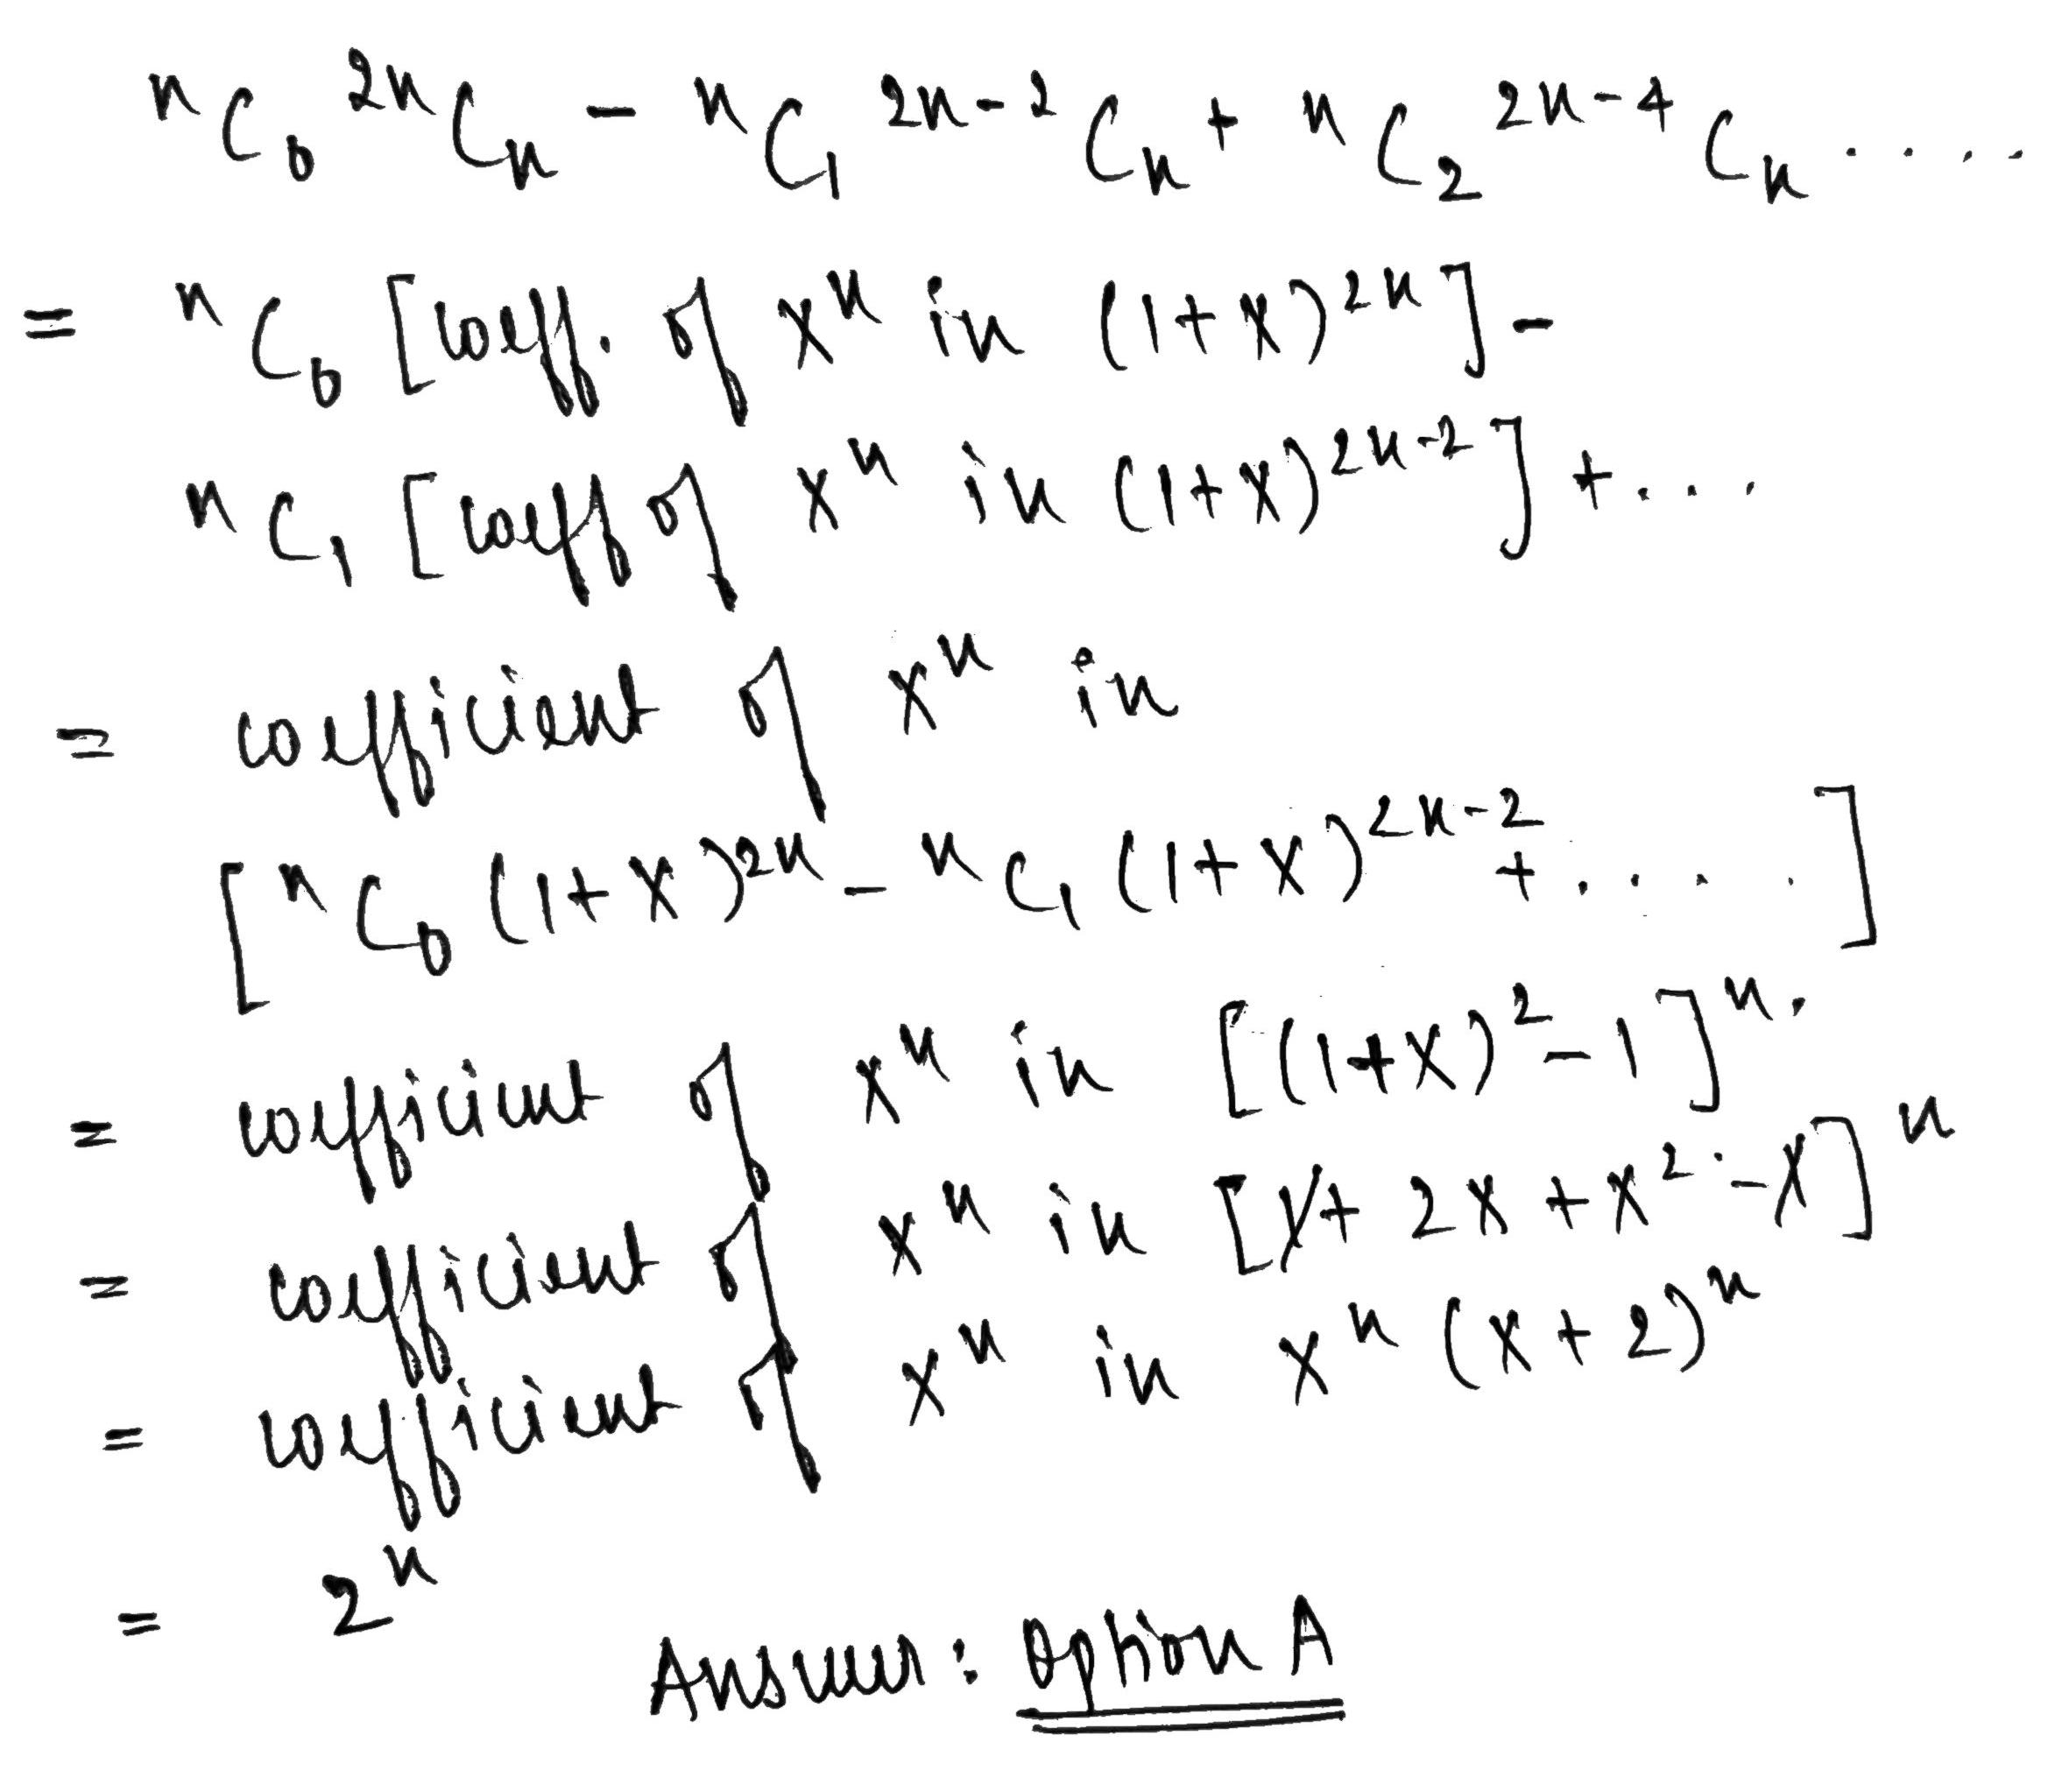 ⁿC₀ ²ⁿCₙ - ⁿC₁ ²ⁿ⁻²Cₙ + ⁿC₂ ²ⁿ⁻⁴Cₙ ....
= ⁿC₀ [coeff. of xⁿ in (1+x)²ⁿ] -
ⁿC₁ [coeff of xⁿ in (1+x)²ⁿ⁻²] + ...
= coefficient of xⁿ in
[ⁿC₀ (1+x)²ⁿ - ⁿC₁ (1+x)²ⁿ⁻² + ....]
= coefficient of xⁿ in [(1+x)² - 1]ⁿ.
= coefficient of xⁿ in [1 + 2x + x² - 1]ⁿ
= coefficient of xⁿ in xⁿ (x+2)ⁿ
= 2ⁿ
Answer: Option A